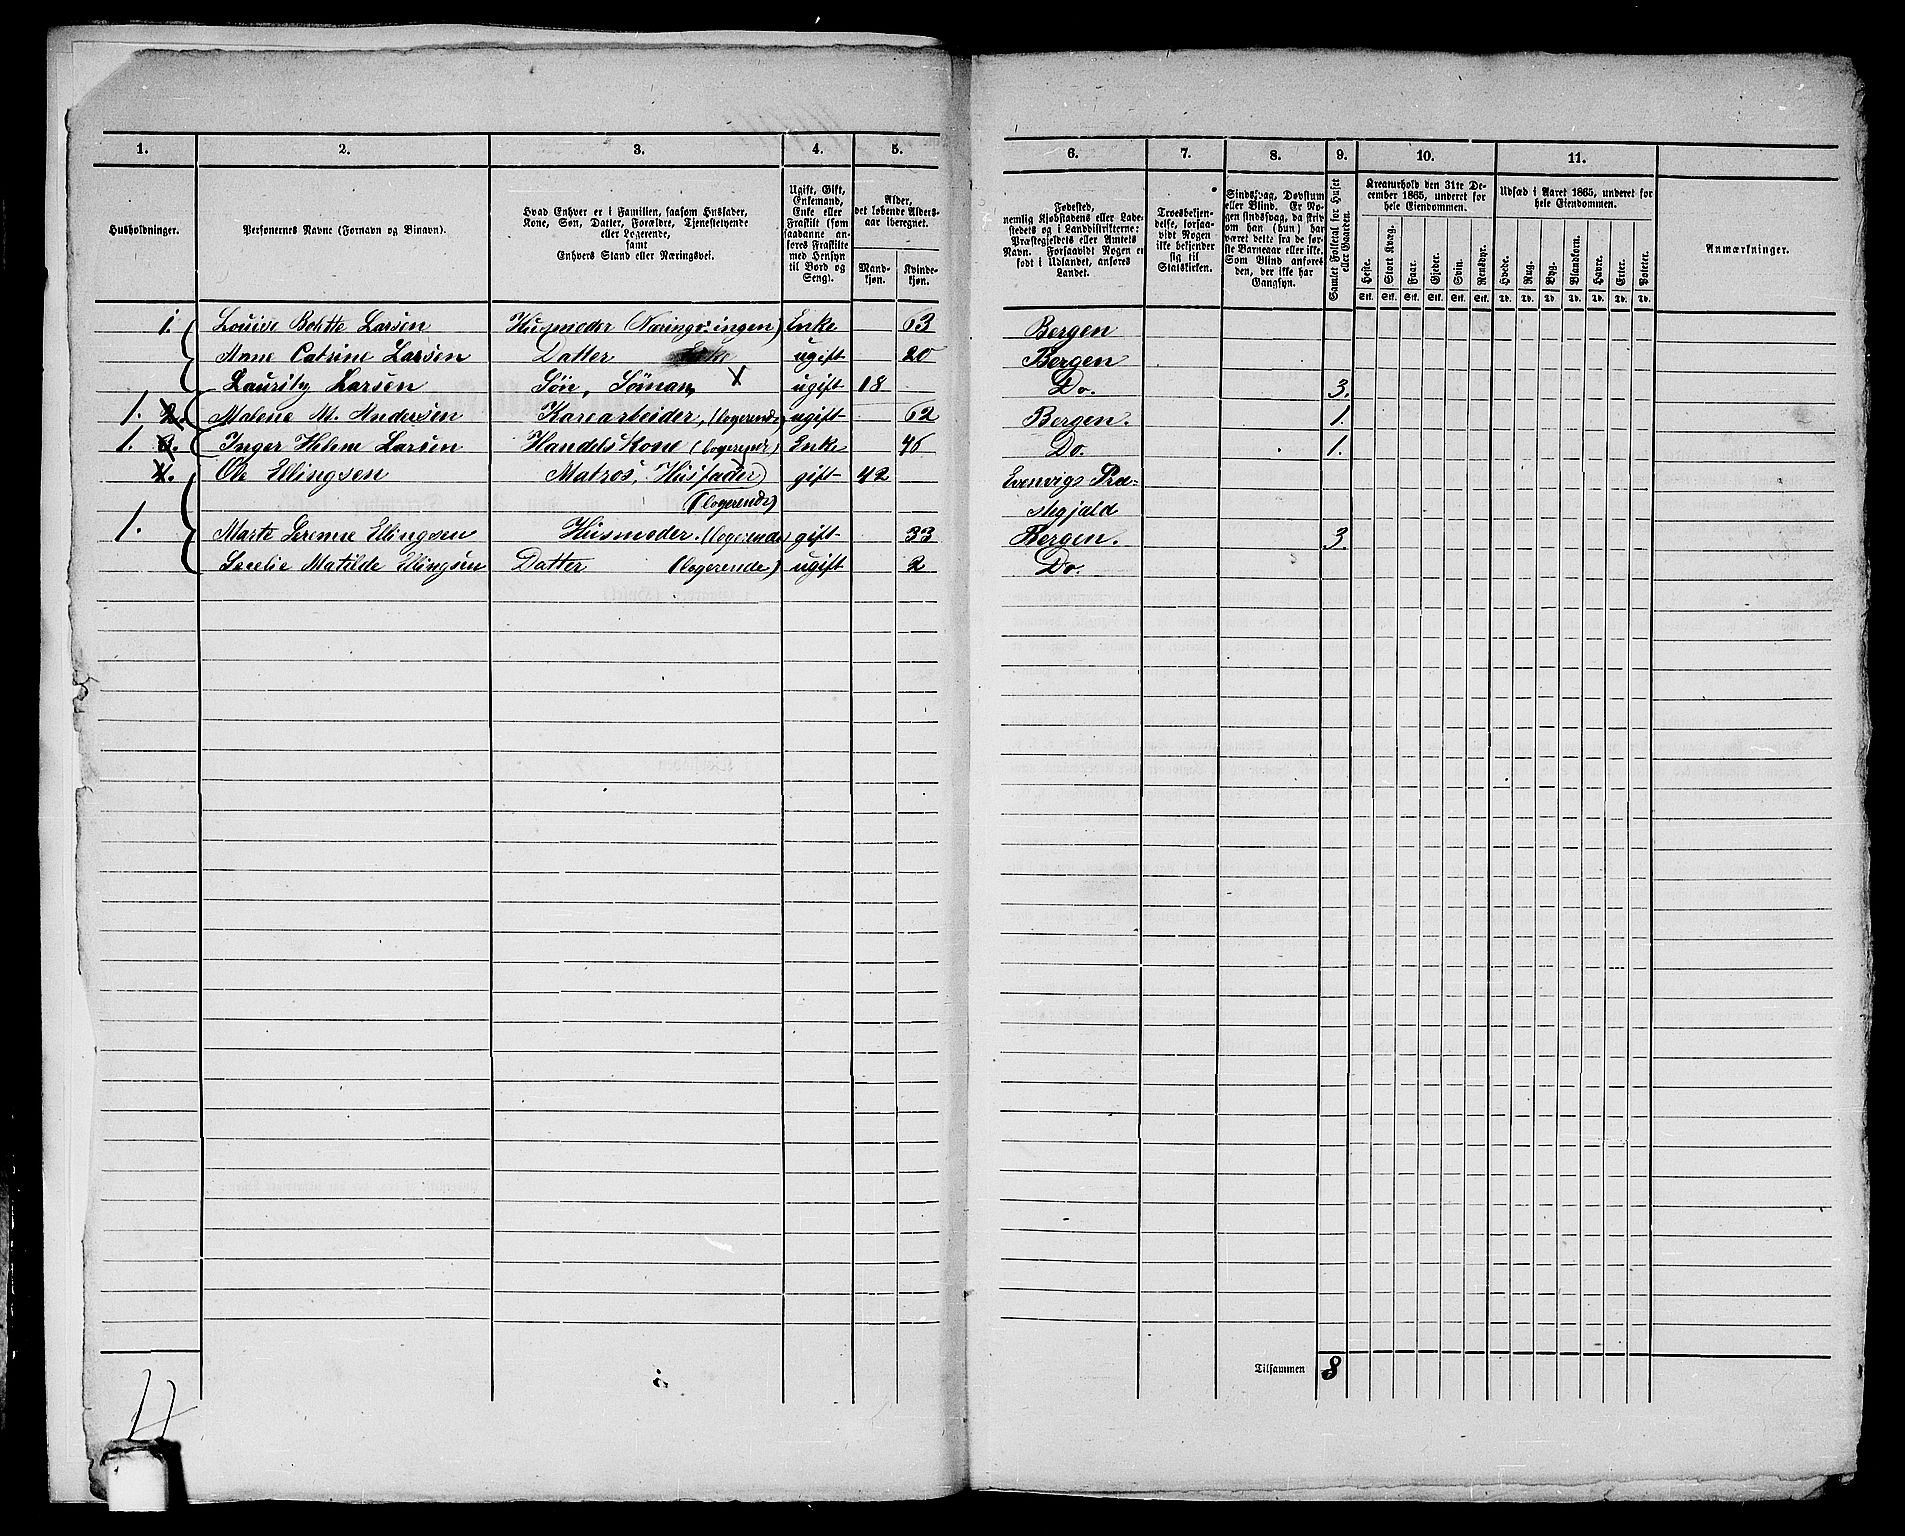 1. 2. 3. 4. 5. 6. 7. 8. 9. 10. 11.
Husholdninger.
Personernes Navne (Fornavn og Binavn).
Hvad Enhver er i Familien, saasom Husfader,
Kone, Søn, Datter, Forældre, Tjenestetyende
eller Logerende,
samt
Enhvers Stand eller Næringsvei.
Ugift, Gift,
Enkemand,
Enke eller
Fraskilt (som
saadanne an-
føres Fraskilte
med Hensyn
til Bord og
Seng).
Alder,
det løbende Alders-
aar iberegnet.
Mand-
kjøn.
Kvinde-
kjøn.
Fødested,
nemlig Kjøbstadens eller Lade-
stedets og i Landdistrikterne:
Præstegjeldets eller Amtets
Navn. Forsaavidt Nogen er
født i Udlandet, anføres
Landet.
Troesbekjen-
delse, forsaa-
vidt Nogen
ikke bekjender
sig til
Statskirken.
Sindssvag, Døvstum
eller Blind. Er No-
gen sindssvag, da skriv
om han (hun) har
været dette fra de før-
ste Barneaar eller ikke.
Som Blind anføres
den, der ikke har
Gangsyn.
Samlet Folketal for Huset
eller Gaarden.
Kreaturhold den 31te De-
cember 1865, underet for
hele Eiendommen.
Heste. Stort Kvæg. Faar. Gjeder. Svin. Rensdyr.
Stk. Stk. Stk. Stk. Stk. Stk.
Udsæd i Aaret 1865, underet for
hele Eiendommen.
Hvede. Rug. Byg. Blandkorn. Havre. Erter. Poteter.
Td. Td. Td. Td. Td. Td. Td.
Anmærkninger.
1. Louise Bolette Larsen Husmoder (Næring: ingen) Enke 63 Bergen
Anne Catrine Larsen Datter ugift 20 Bergen
Lauritz Larsen Søn, Sömand ugift 18 Do. 3.
1. 2. Malene M. Andersen Karearbeider, (logerende) ugift 62 Bergen. 1.
1. 3. Inger Helene Larsen Handels Kone (logerende) Enke 45 Do. 1.
4. Ole Ellingsen Matros, Husfader) gift 42 Evenvigs Præ-
(logerende) stegjæld
1. Marte Serene Ellingsen Husmoder. (logerende gift 33 Bergen. 3.
Secelie Matilde Ellingsen Datter (logerende) ugift 2 Do.
Tilsammen 8